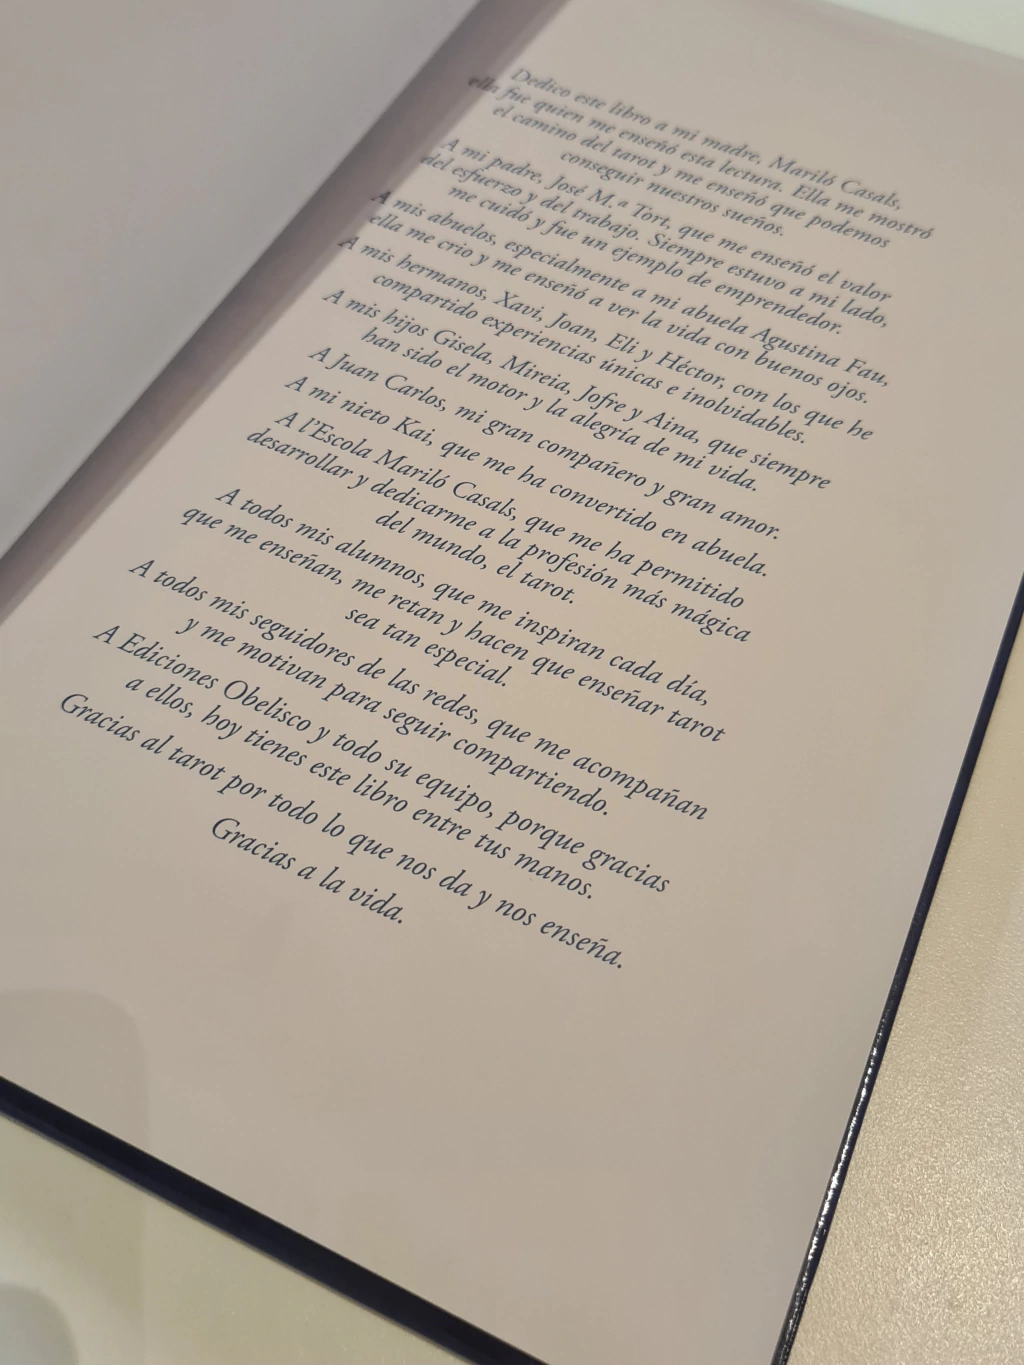 Dedico este libro a mi madre, Mariló Casals,
ella fue quien me enseñó esta lectura. Ella me mostró
el camino del tarot y me enseñó que podemos
conseguir nuestros sueños.
A mi padre, José M.ª Tort, que me enseñó el valor
del esfuerzo y del trabajo. Siempre estuvo a mi lado,
me cuidó y fue un ejemplo de emprendedor.
A mis abuelos, especialmente a mi abuela Agustina Fau,
ella me crio y me enseñó a ver la vida con buenos ojos.
A mis hermanos, Xavi, Joan, Eli y Héctor, con los que he
compartido experiencias únicas e inolvidables.
A mis hijos Gisela, Mireia, Jofre y Aina, que siempre
han sido el motor y la alegría de mi vida.
A Juan Carlos, mi gran compañero y gran amor.
A mi nieto Kai, que me ha convertido en abuela.
A l'Escola Mariló Casals, que me ha permitido
desarrollar y dedicarme a la profesión más mágica
del mundo, el tarot.
A todos mis alumnos, que me inspiran cada día,
que me enseñan, me retan y hacen que enseñar tarot
sea tan especial.
A todos mis seguidores de las redes, que me acompañan
y me motivan para seguir compartiendo.
A Ediciones Obelisco y todo su equipo, porque gracias
a ellos, hoy tienes este libro entre tus manos.
Gracias al tarot por todo lo que nos da y nos enseña.
Gracias a la vida.